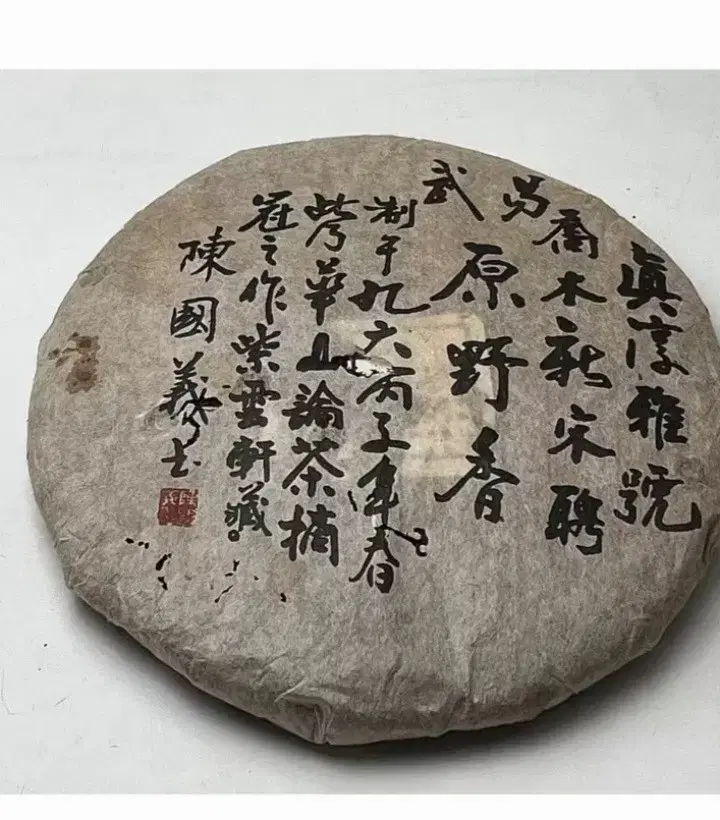 眞淳雅號
易武
喬木新宋聘
原野香
制于九六丙子年春
此乃華山論茶摘
冠之作紫雲軒藏。
陳國義